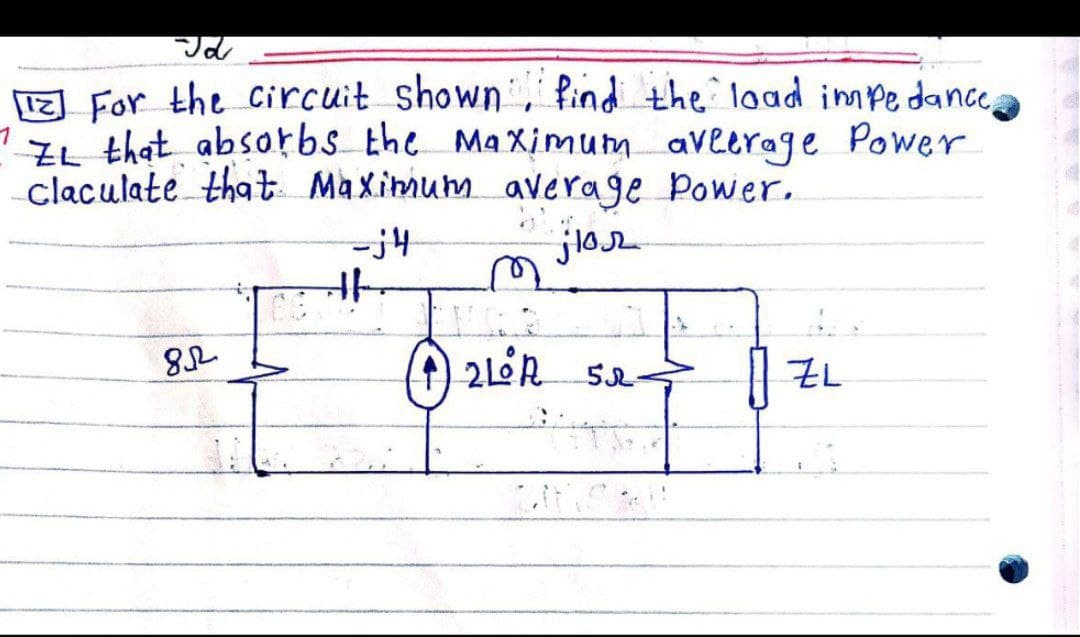 -J2
12 For the circuit shown, find the load impedance
ZL that absorbs the Maximum aveerage Power
claculate that Maximum average Power.
-j4 j10Ω
8Ω 2∠0° A 5Ω ZL